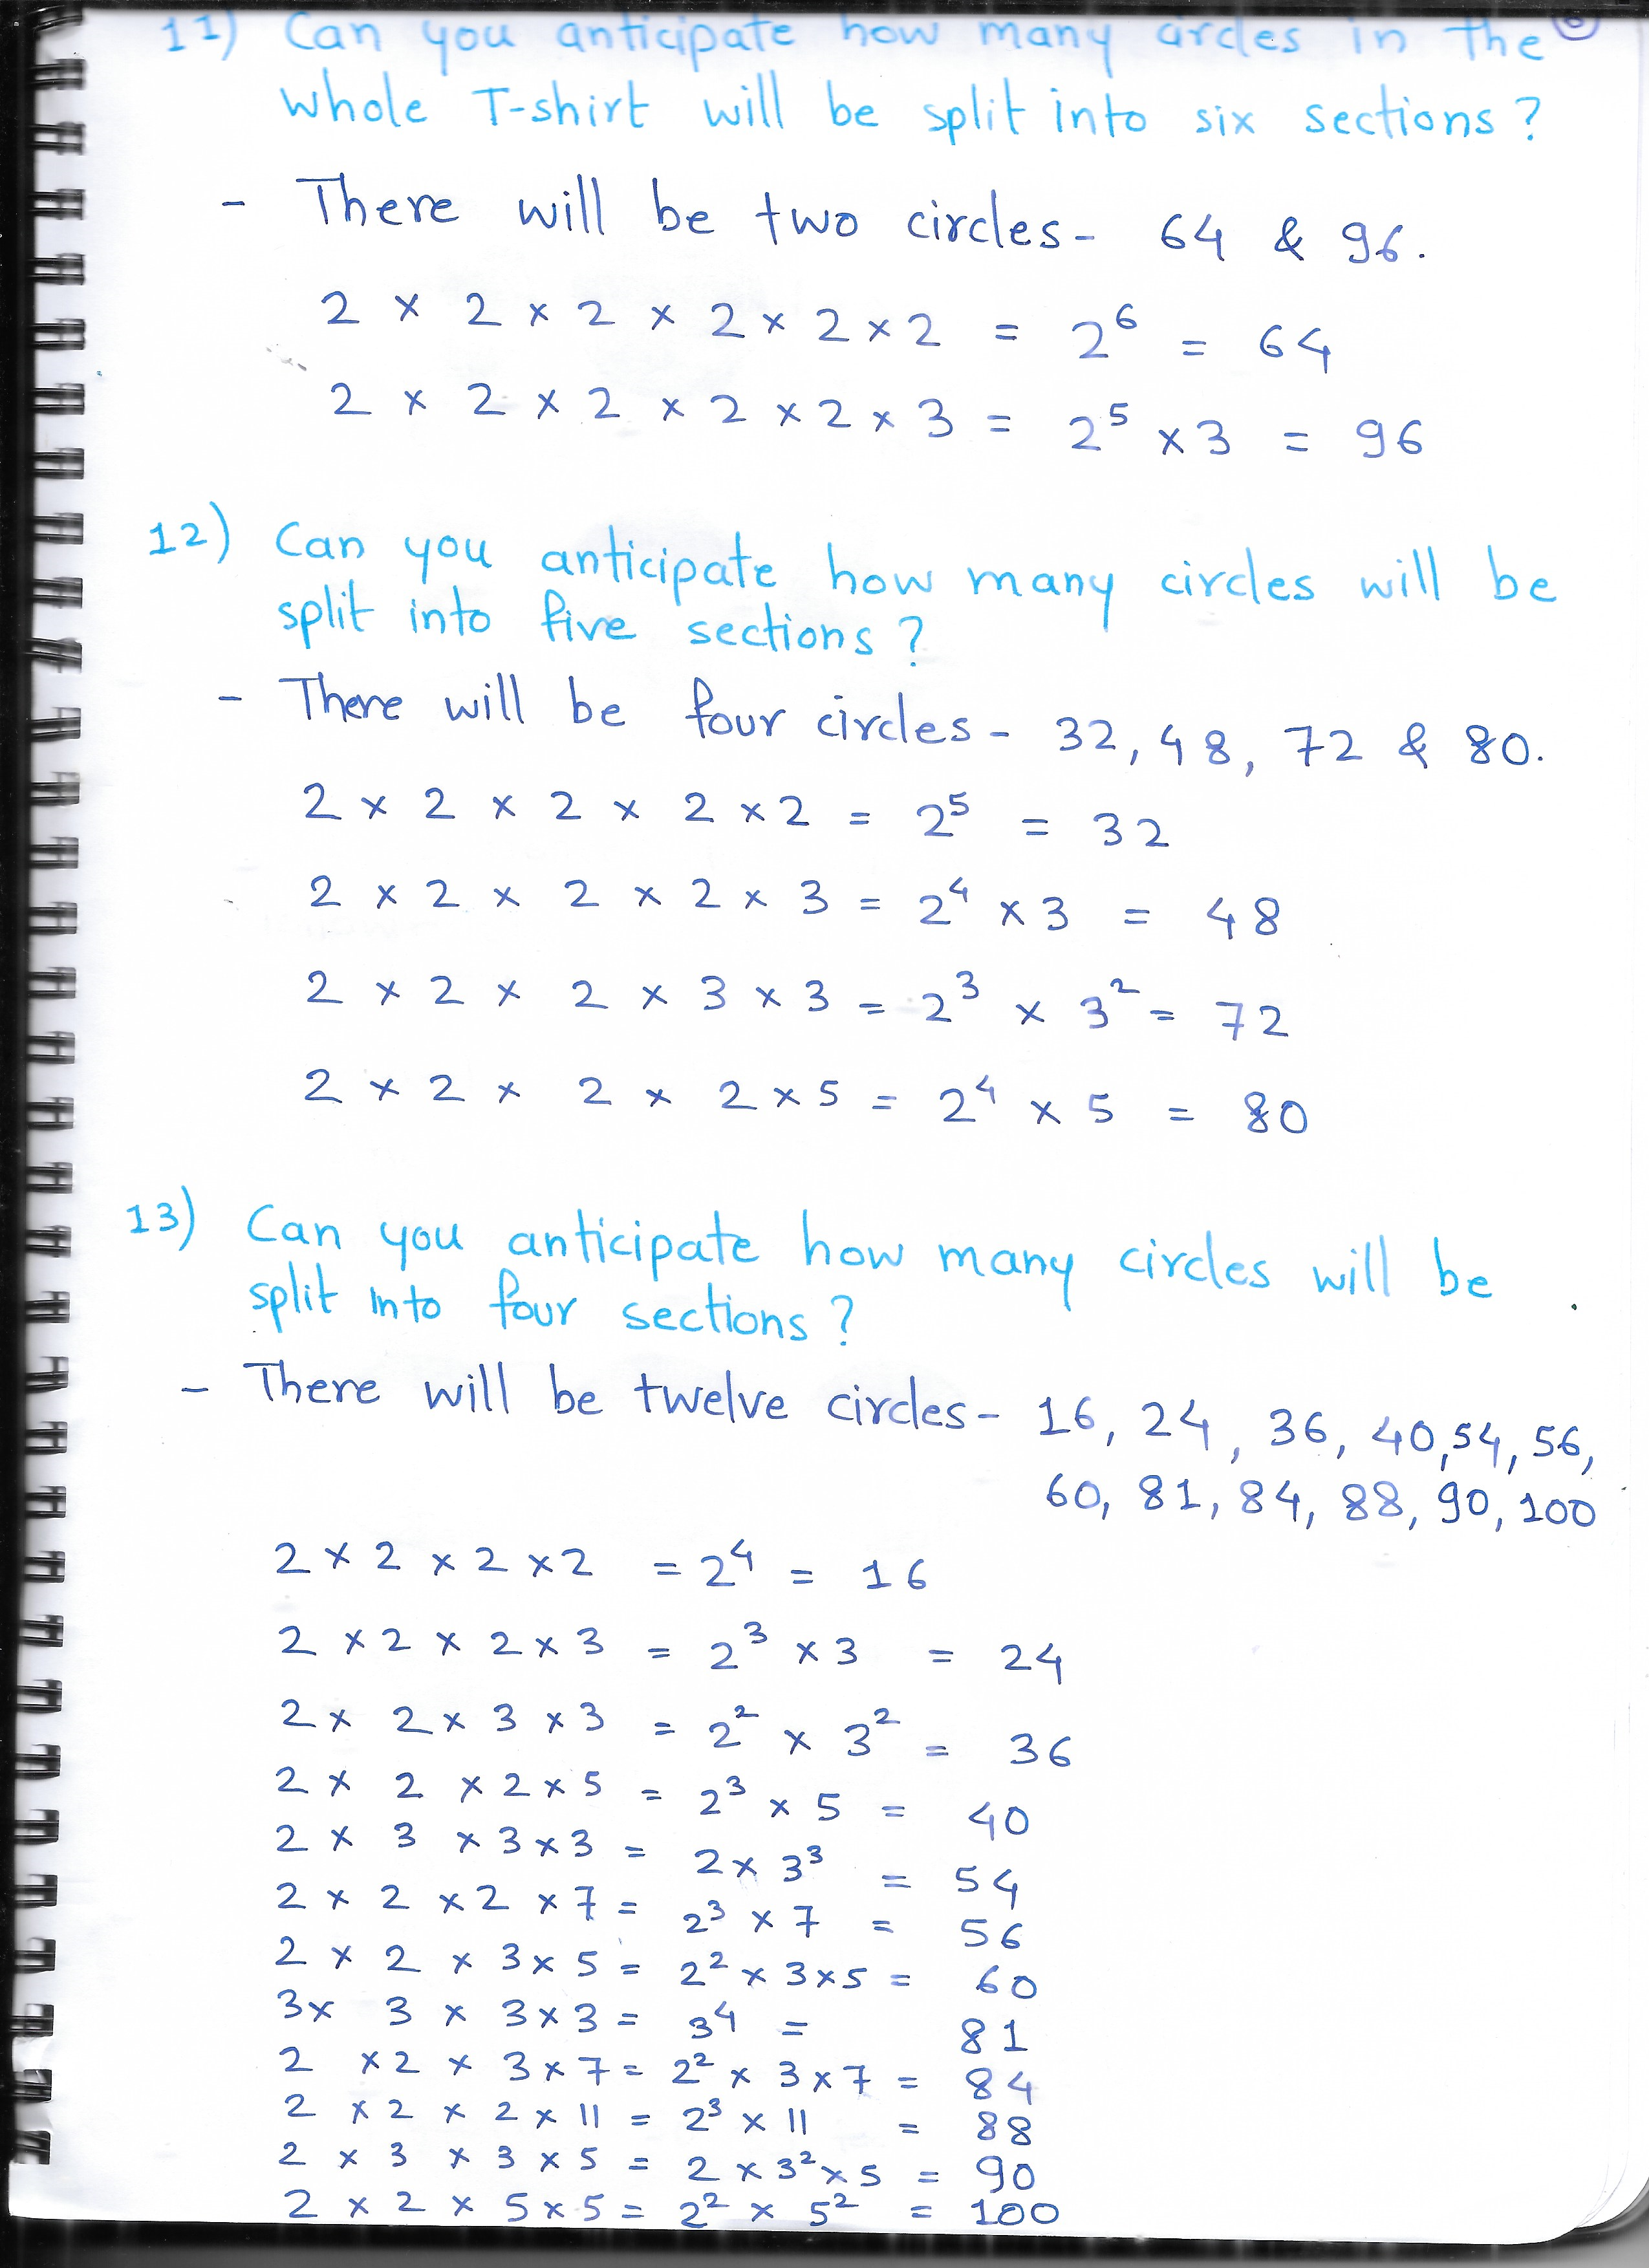 11) Can you anticipate how many circles in the
whole T-shirt will be split into six sections?
- There will be two circles- 64 & 96.
2 × 2 × 2 × 2 × 2 × 2 = 2⁶ = 64
2 × 2 × 2 × 2 × 2 × 3 = 2⁵ × 3 = 96
12) Can you anticipate how many circles will be
split into five sections?
- There will be four circles - 32, 48, 72 & 80.
2 × 2 × 2 × 2 × 2 = 2⁵ = 32
2 × 2 × 2 × 2 × 3 = 2⁴ × 3 = 48
2 × 2 × 2 × 3 × 3 = 2³ × 3² = 72
2 × 2 × 2 × 2 × 5 = 2⁴ × 5 = 80
13) Can you anticipate how many circles will be
split into four sections?
- There will be twelve circles- 16, 24, 36, 40, 54, 56,
60, 81, 84, 88, 90, 100
2 × 2 × 2 × 2 = 2⁴ = 16
2 × 2 × 2 × 3 = 2³ × 3 = 24
2 × 2 × 3 × 3 = 2² × 3² = 36
2 × 2 × 2 × 5 = 2³ × 5 = 40
2 × 3 × 3 × 3 = 2 × 3³ = 54
2 × 2 × 2 × 7 = 2³ × 7 = 56
2 × 2 × 3 × 5 = 2² × 3 × 5 = 60
3 × 3 × 3 × 3 = 3⁴ = 81
2 × 2 × 3 × 7 = 2² × 3 × 7 = 84
2 × 2 × 2 × 11 = 2³ × 11 = 88
2 × 3 × 3 × 5 = 2 × 3² × 5 = 90
2 × 2 × 5 × 5 = 2² × 5² = 100